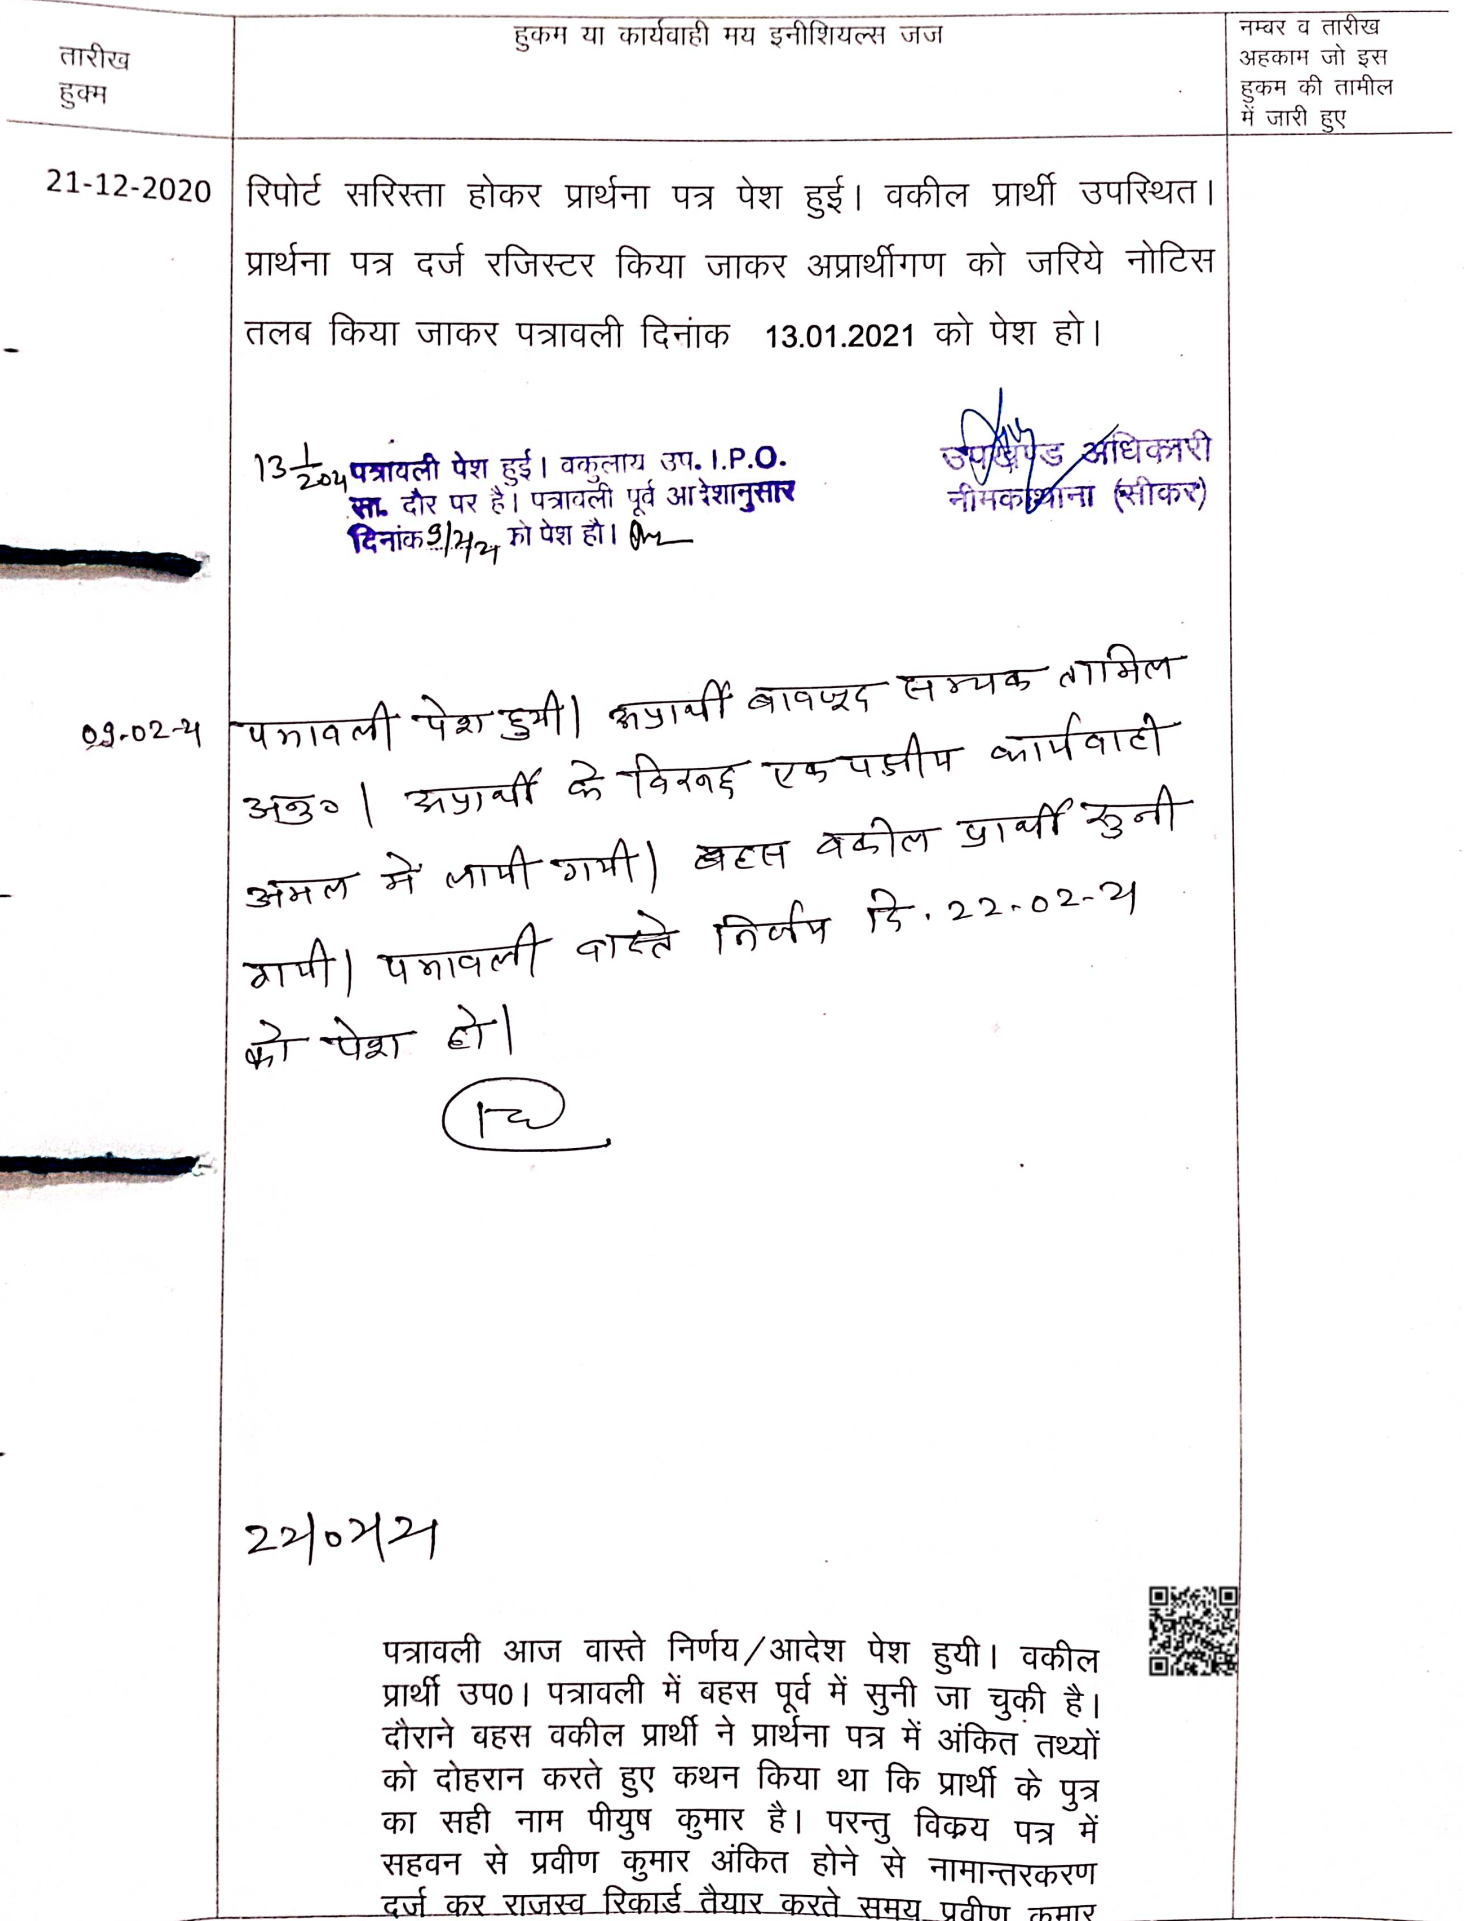 तारीख
हुक्म
हुकम या कार्यवाही मय इनीशियल्स जज
नम्बर व तारीख
अहकाम जो इस
हुकम की तामील
में जारी हुए
21-12-2020
रिपोर्ट सरिस्ता होकर प्रार्थना पत्र पेश हुई। वकील प्रार्थी उपस्थित।
प्रार्थना पत्र दर्ज रजिस्टर किया जाकर अप्रार्थीगण को जरिये नोटिस
तलब किया जाकर पत्रावली दिनांक 13.01.2021 को पेश हो।
पत्रावली पेश हुई। वकुलाय उप. I.P.O.
सा. दौर पर है। पत्रावली पूर्व आदेशानुसार
दिनांक 9/2/21 को पेश हो।
उपखण्ड अधिकारी
नीमकाथाना (सीकर)
09-02-21
पत्रावली पेश हुयी। अप्रार्थी बावजूद सम्यक तामिल
अनु०। अप्रार्थी के विरुद्ध एक पक्षीय कार्यवाही
अमल में लायी गयी। बहस वकील प्रार्थी सुनी
गयी। पत्रावली वास्ते निर्णय दि. 22-02-21
को पेश हो।
22/02/21
पत्रावली आज वास्ते निर्णय/आदेश पेश हुयी। वकील
प्रार्थी उप0। पत्रावली में बहस पूर्व में सुनी जा चुकी है।
दौराने बहस वकील प्रार्थी ने प्रार्थना पत्र में अंकित तथ्यों
को दोहरान करते हुए कथन किया था कि प्रार्थी के पुत्र
का सही नाम पीयुष कुमार है। परन्तु विक्रय पत्र में
सहवन से प्रवीण कुमार अंकित होने से नामान्तरकरण
दर्ज कर राजस्व रिकार्ड तैयार करते समय प्रवीण कुमार